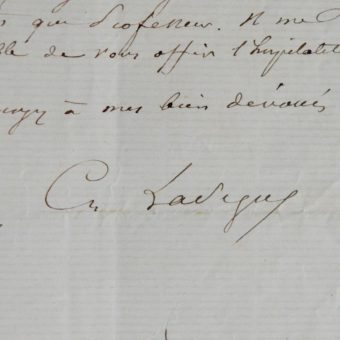 que professeur. Il me
de vous offrir l'hospitalit
à mes bien dévoués
Ch Lavigerie